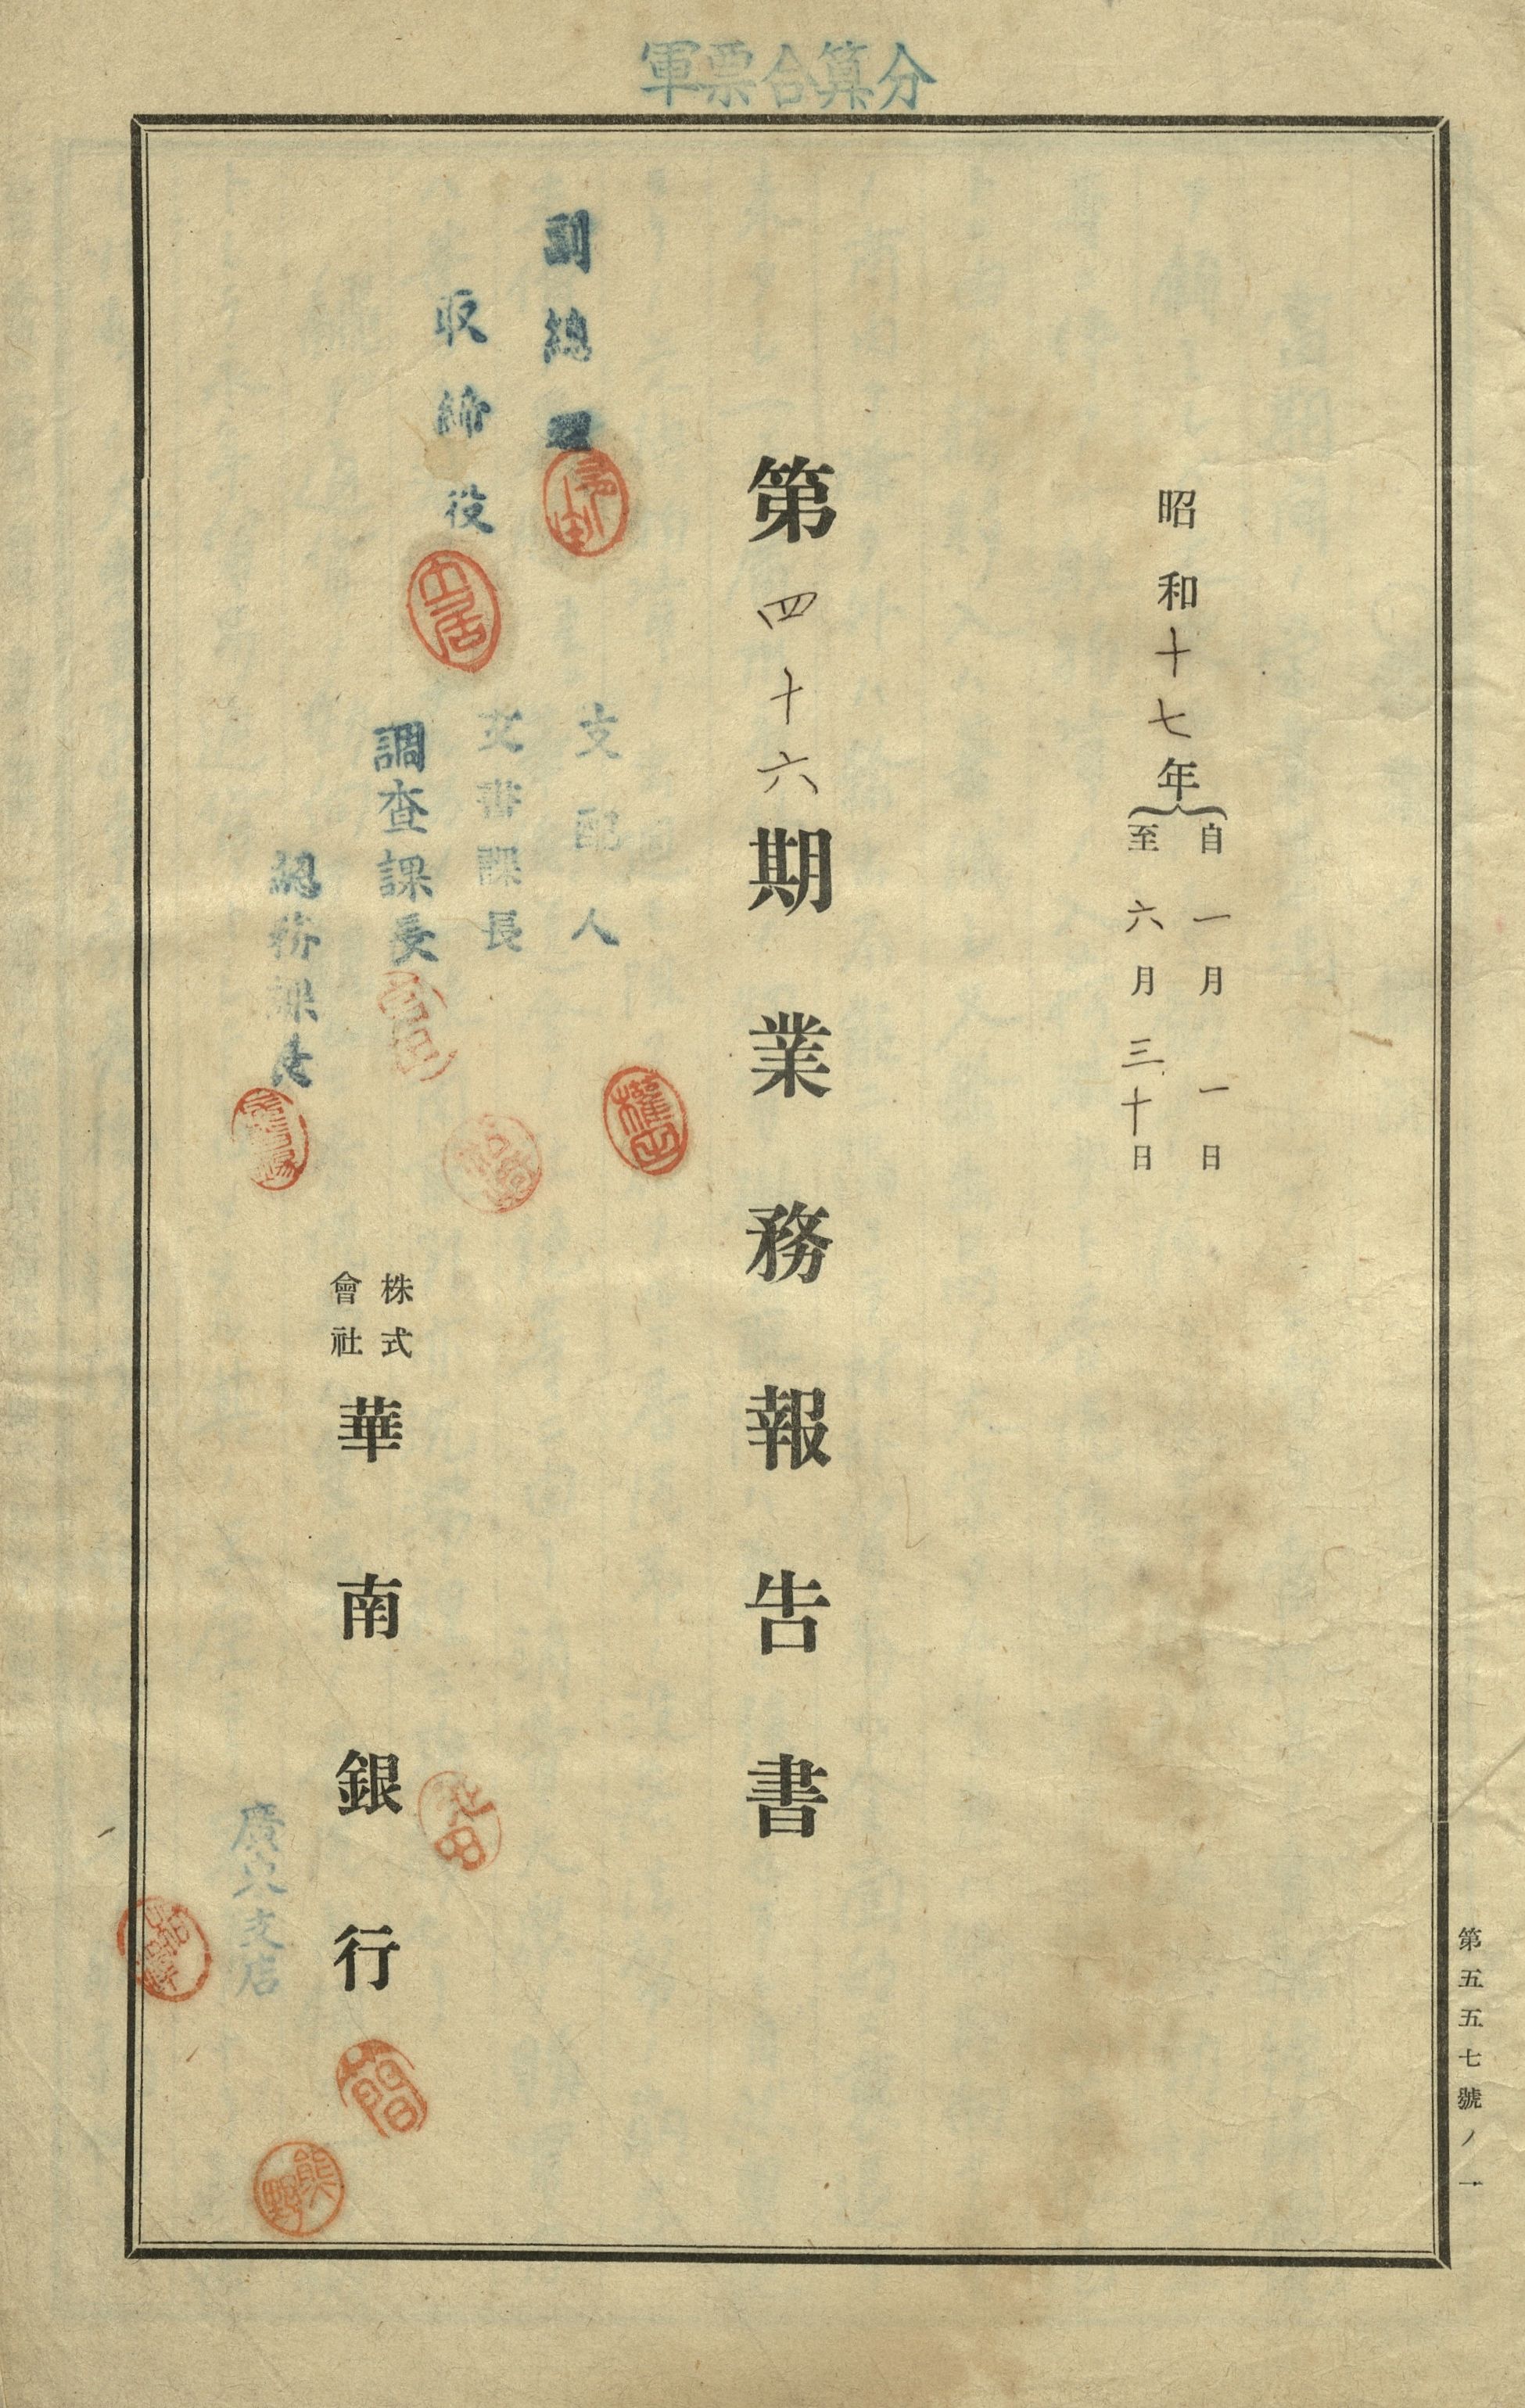 軍票合算分
昭和十七年
自一月一日
至六月三十日
第四十六期業務報告書
副總理
取締役
支配人
文書課長
調查課長
總務課長
株式
會社
華南銀行
廣東支店
熊野
第五五七號ノ一